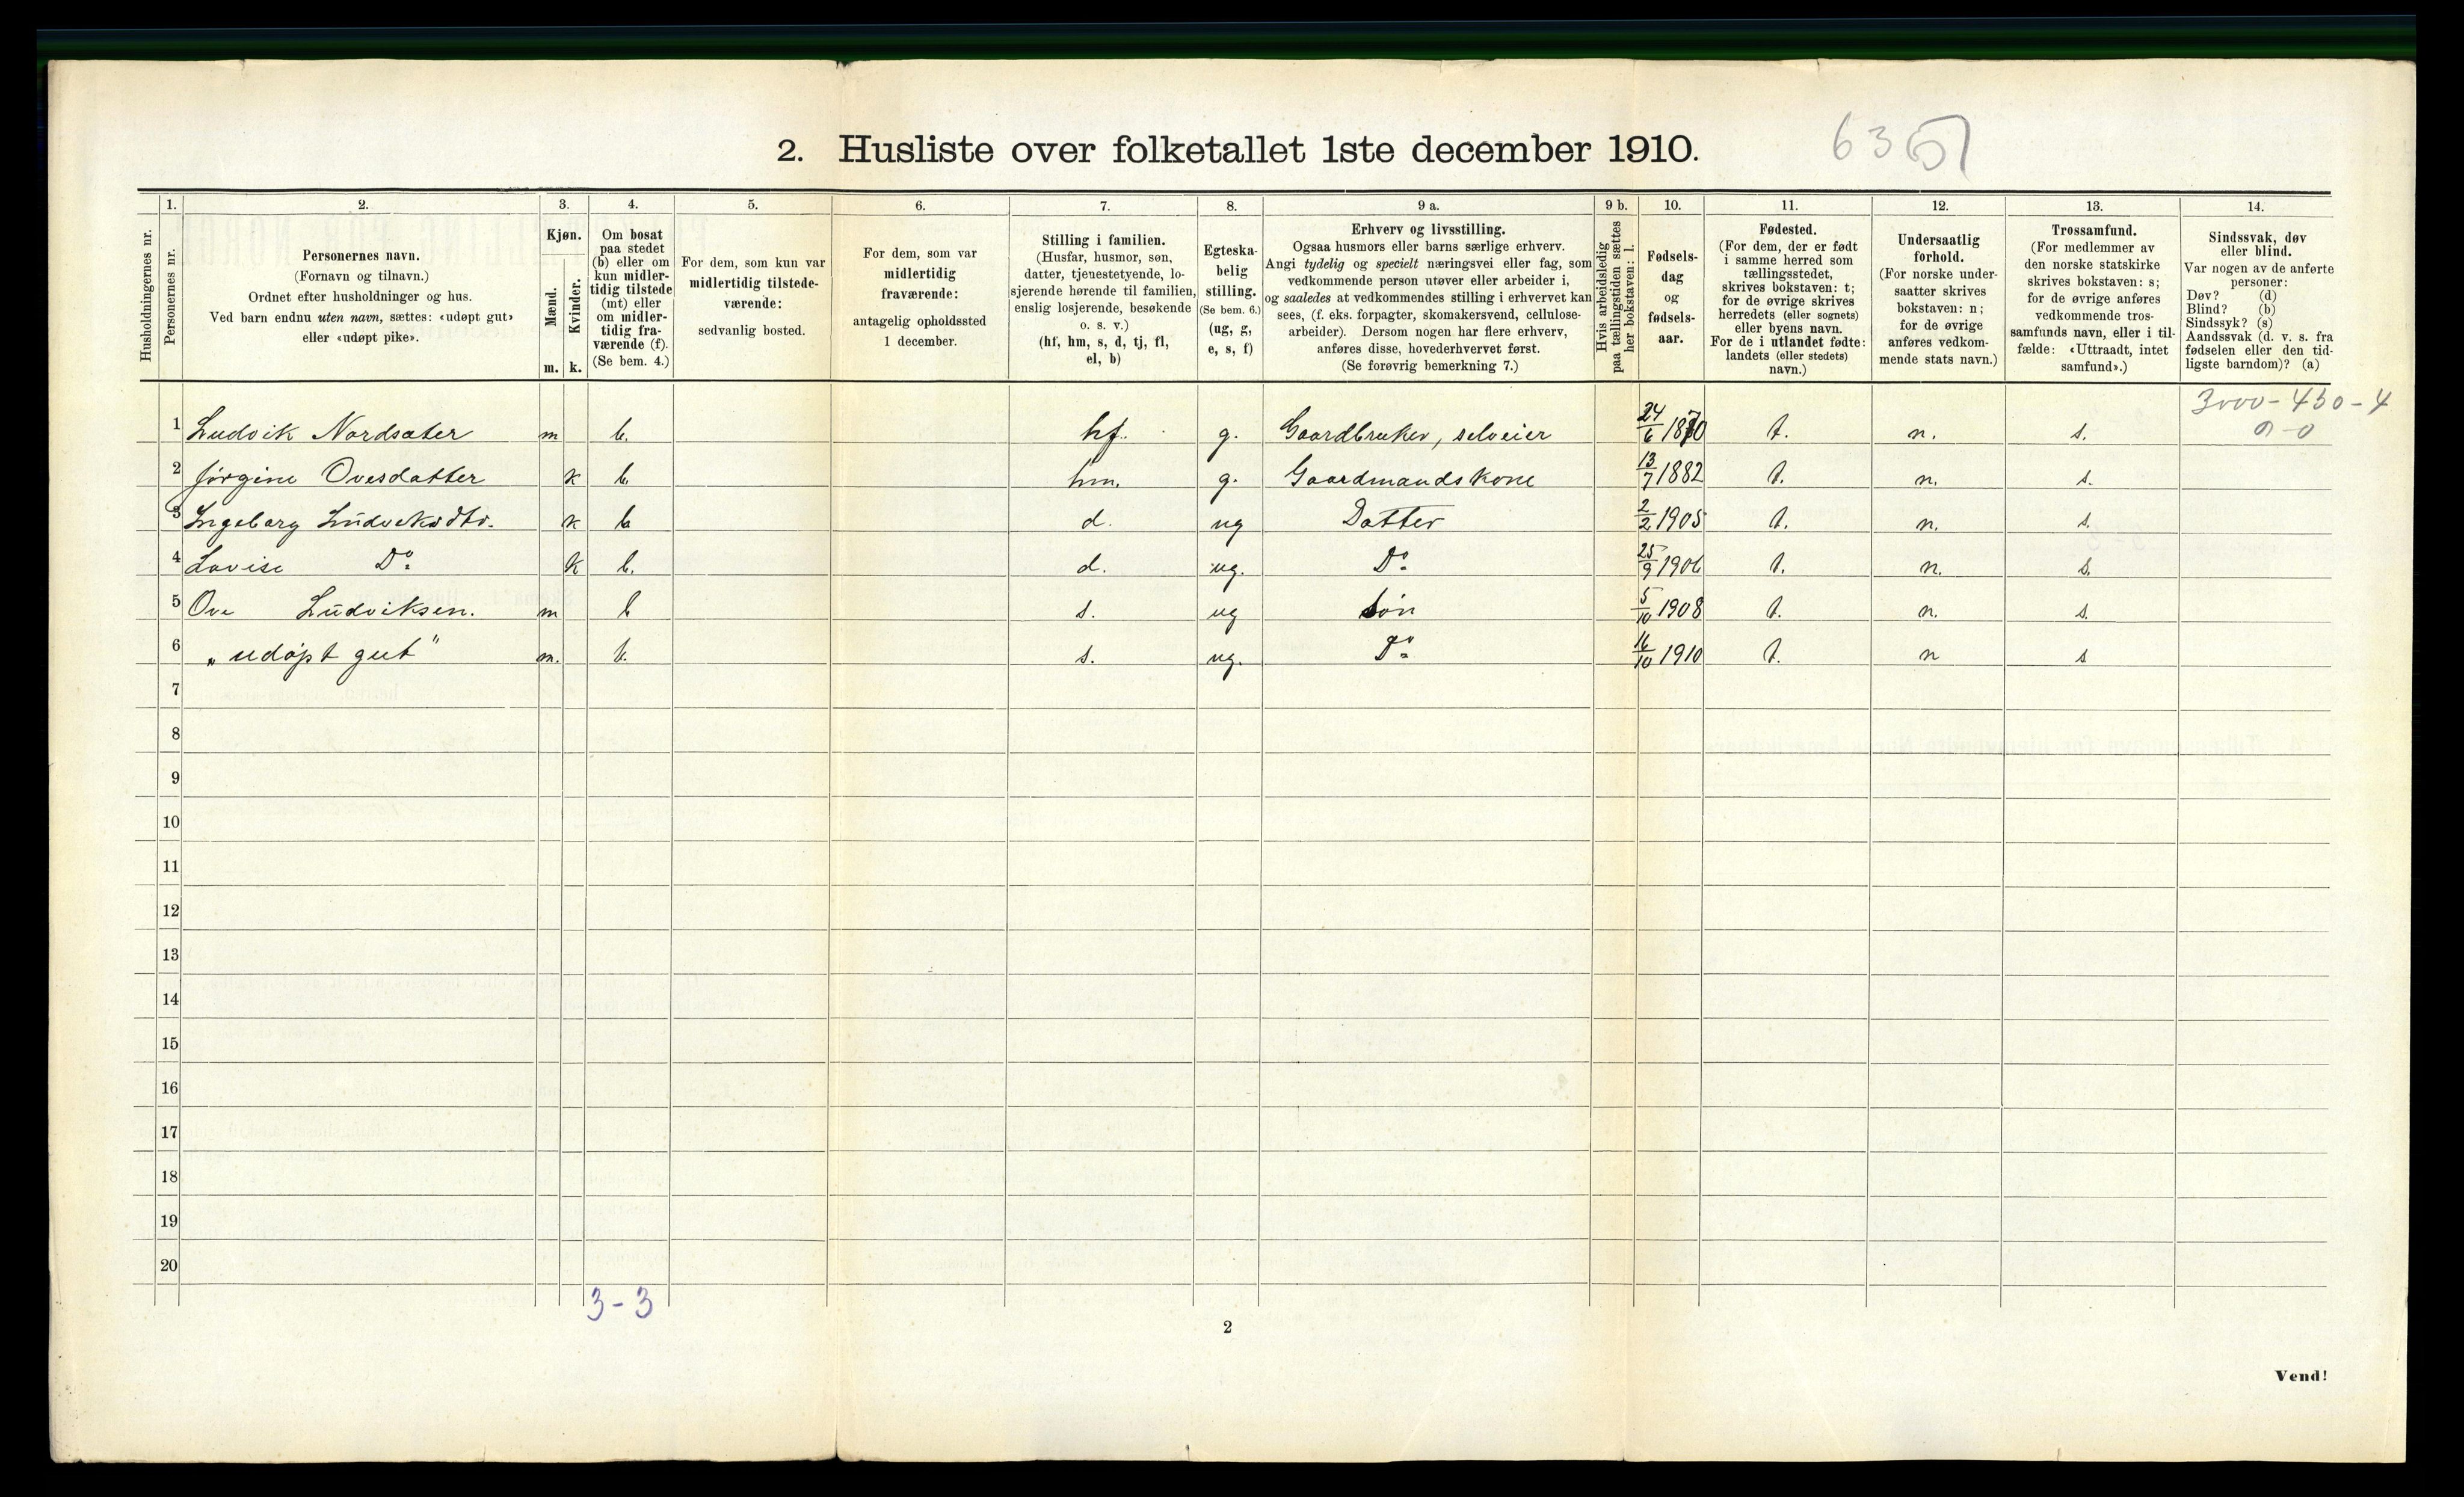 2. Husliste over folketallet 1ste december 1910.
1. 2. 3. 4. 5. 6. 7. 8. 9 a. 9 b. 10. 11. 12. 13. 14.
Husholdningernes nr.
Personernes nr.
Personernes navn.
(Fornavn og tilnavn.)
Ordnet efter husholdninger og hus.
Ved barn endnu uten navn, sættes: «udøpt gut»
eller «udøpt pike».
Kjøn.
Mænd.
Kvinder.
m. k.
Om bosat
paa stedet
(b) eller om
kun midler-
tidig tilstede
(mt) eller
om midler-
tidig fra-
værende (f).
(Se bem. 4.)
For dem, som kun var
midlertidig tilstede-
værende:
sedvanlig bosted.
For dem, som var
midlertidig
fraværende:
antagelig opholdssted
1 december.
Stilling i familien.
(Husfar, husmor, søn,
datter, tjenestetyende, lo-
sjerende hørende til familien,
enslig losjerende, besøkende
o. s. v.)
(hf, hm, s, d, tj, fl,
el, b)
Egteska-
belig
stilling.
(Se bem. 6.)
(ug, g,
e, s, f)
Erhverv og livsstilling.
Ogsaa husmors eller barns særlige erhverv.
Angi tydelig og specielt næringsvei eller fag, som
vedkommende person utøver eller arbeider i,
og saaledes at vedkommendes stilling i erhvervet kan
sees, (f. eks. forpagter, skomakersvend, cellulose-
arbeider). Dersom nogen har flere erhverv,
anføres disse, hovederhvervet først.
(Se forøvrig bemerkning 7.)
Hvis arbeidsledig
paa tællingstiden sættes
her bokstaven: l.
Fødsels-
dag
og
fødsels-
aar.
Fødested.
(For dem, der er født
i samme herred som
tællingsstedet,
skrives bokstaven: t;
for de øvrige skrives
herredets (eller sognets)
eller byens navn.
For de i utlandet fødte:
landets (eller stedets)
navn.)
Undersaatlig
forhold.
(For norske under-
saatter skrives
bokstaven: n;
for de øvrige
anføres vedkom-
mende stats navn.)
Trossamfund.
(For medlemmer av
den norske statskirke
skrives bokstaven: s;
for de øvrige anføres
vedkommende tros-
samfunds navn, eller i til-
fælde: «Uttraadt, intet
samfund».)
Sindssvak, døv
eller blind.
Var nogen av de anførte
personer:
Døv? (d)
Blind? (b)
Sindssyk? (s)
Aandssvak (d. v. s. fra
fødselen eller den tid-
ligste barndom)? (a)
3000-450-4
0-0
1 Ludvik Nordsæter m b. hf. g. Gaardbruker, selveier 24/6 1870 t. n. s.
2 Jørgine Ovesdatter k b. hm. g. Gaardmandskone 13/7 1882 t. n. s.
3 Ingeborg Ludviksdtr. k b d. ug Datter 2/2 1905 t. n. s.
4 Lovise Do k b. d. ug. Do 25/9 1906 t. n. s.
5 Ove Ludviksen. m b s. ug Søn 5/10 1908 t. n. s.
6 "udøpt gut" m. b. s. ug. Do 16/10 1910 t. n s
7
8
9
10
11
12
13
14
15
16
17
18
19
20
3-3
2
Vend!